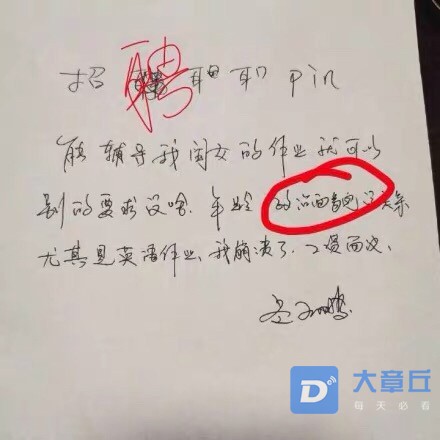 招 聘 Pin
能辅导我闺女的作业就可以
别的要求没啥.年龄 政治面貌 关系
尤其是英语作业、我崩溃了、工资面议、
大章丘
每天必看